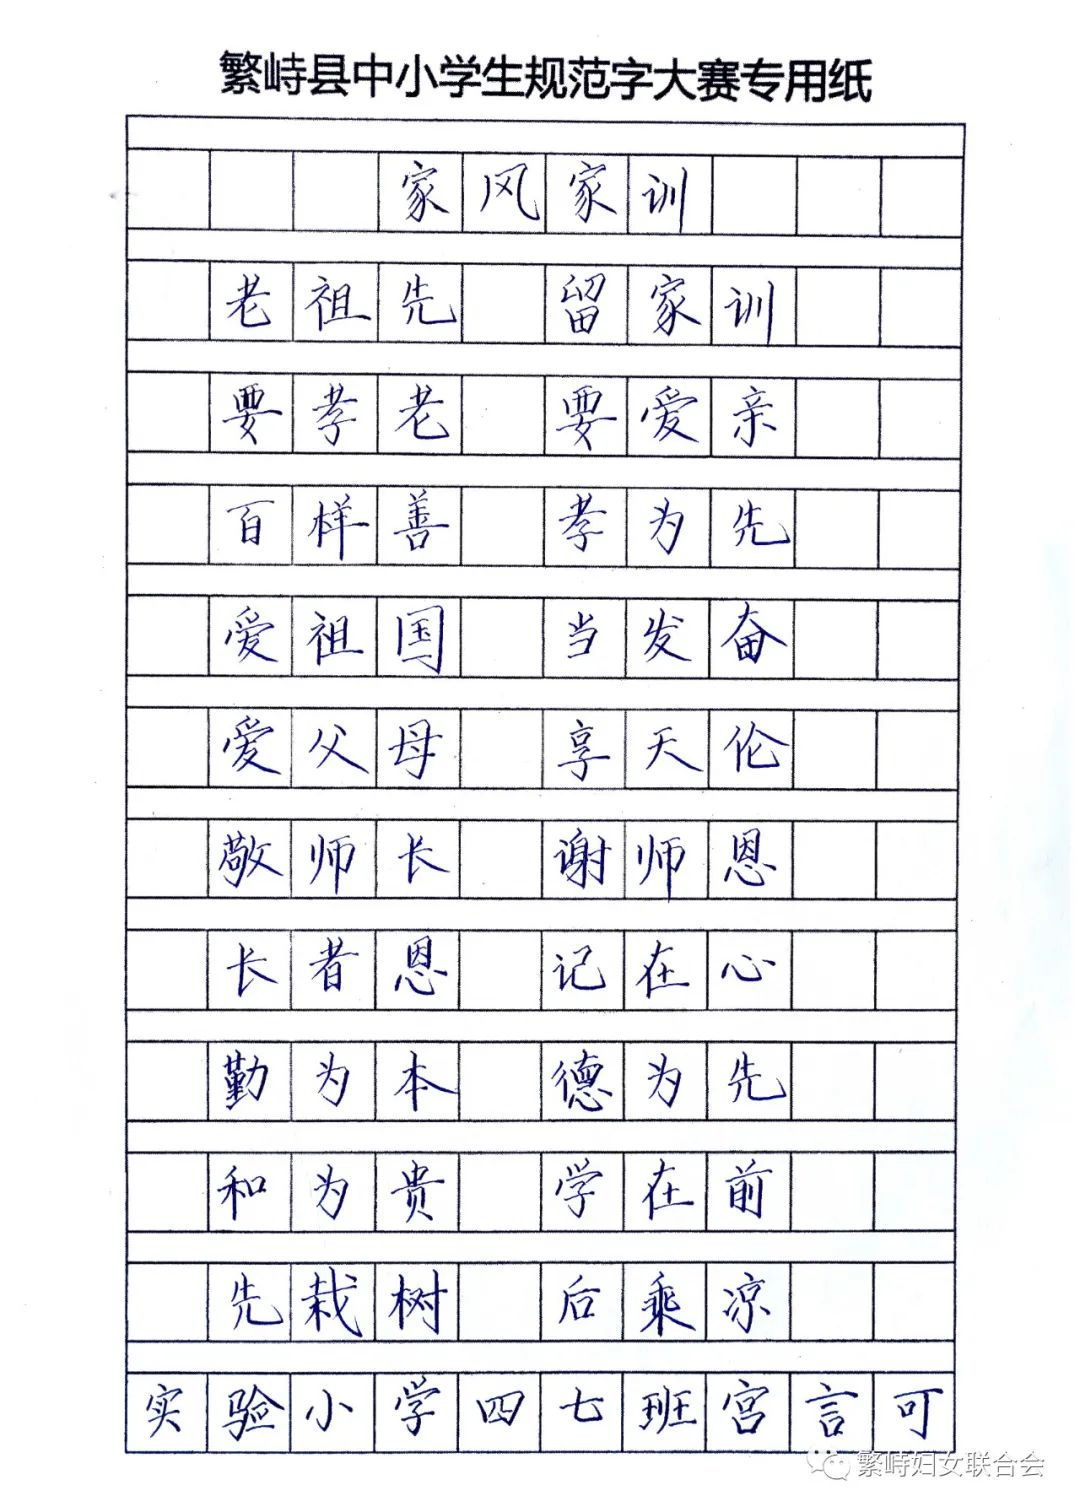 繁峙县中小学生规范字大赛专用纸
家风家训
老祖先 留家训
要孝老 要爱亲
百样善 孝为先
爱祖国 当发奋
爱父母 享天伦
敬师长 谢师恩
长者恩 记在心
勤为本 德为先
和为贵 学在前
先栽树 后乘凉
实验小学四七班宫言可
繁峙妇女联合会